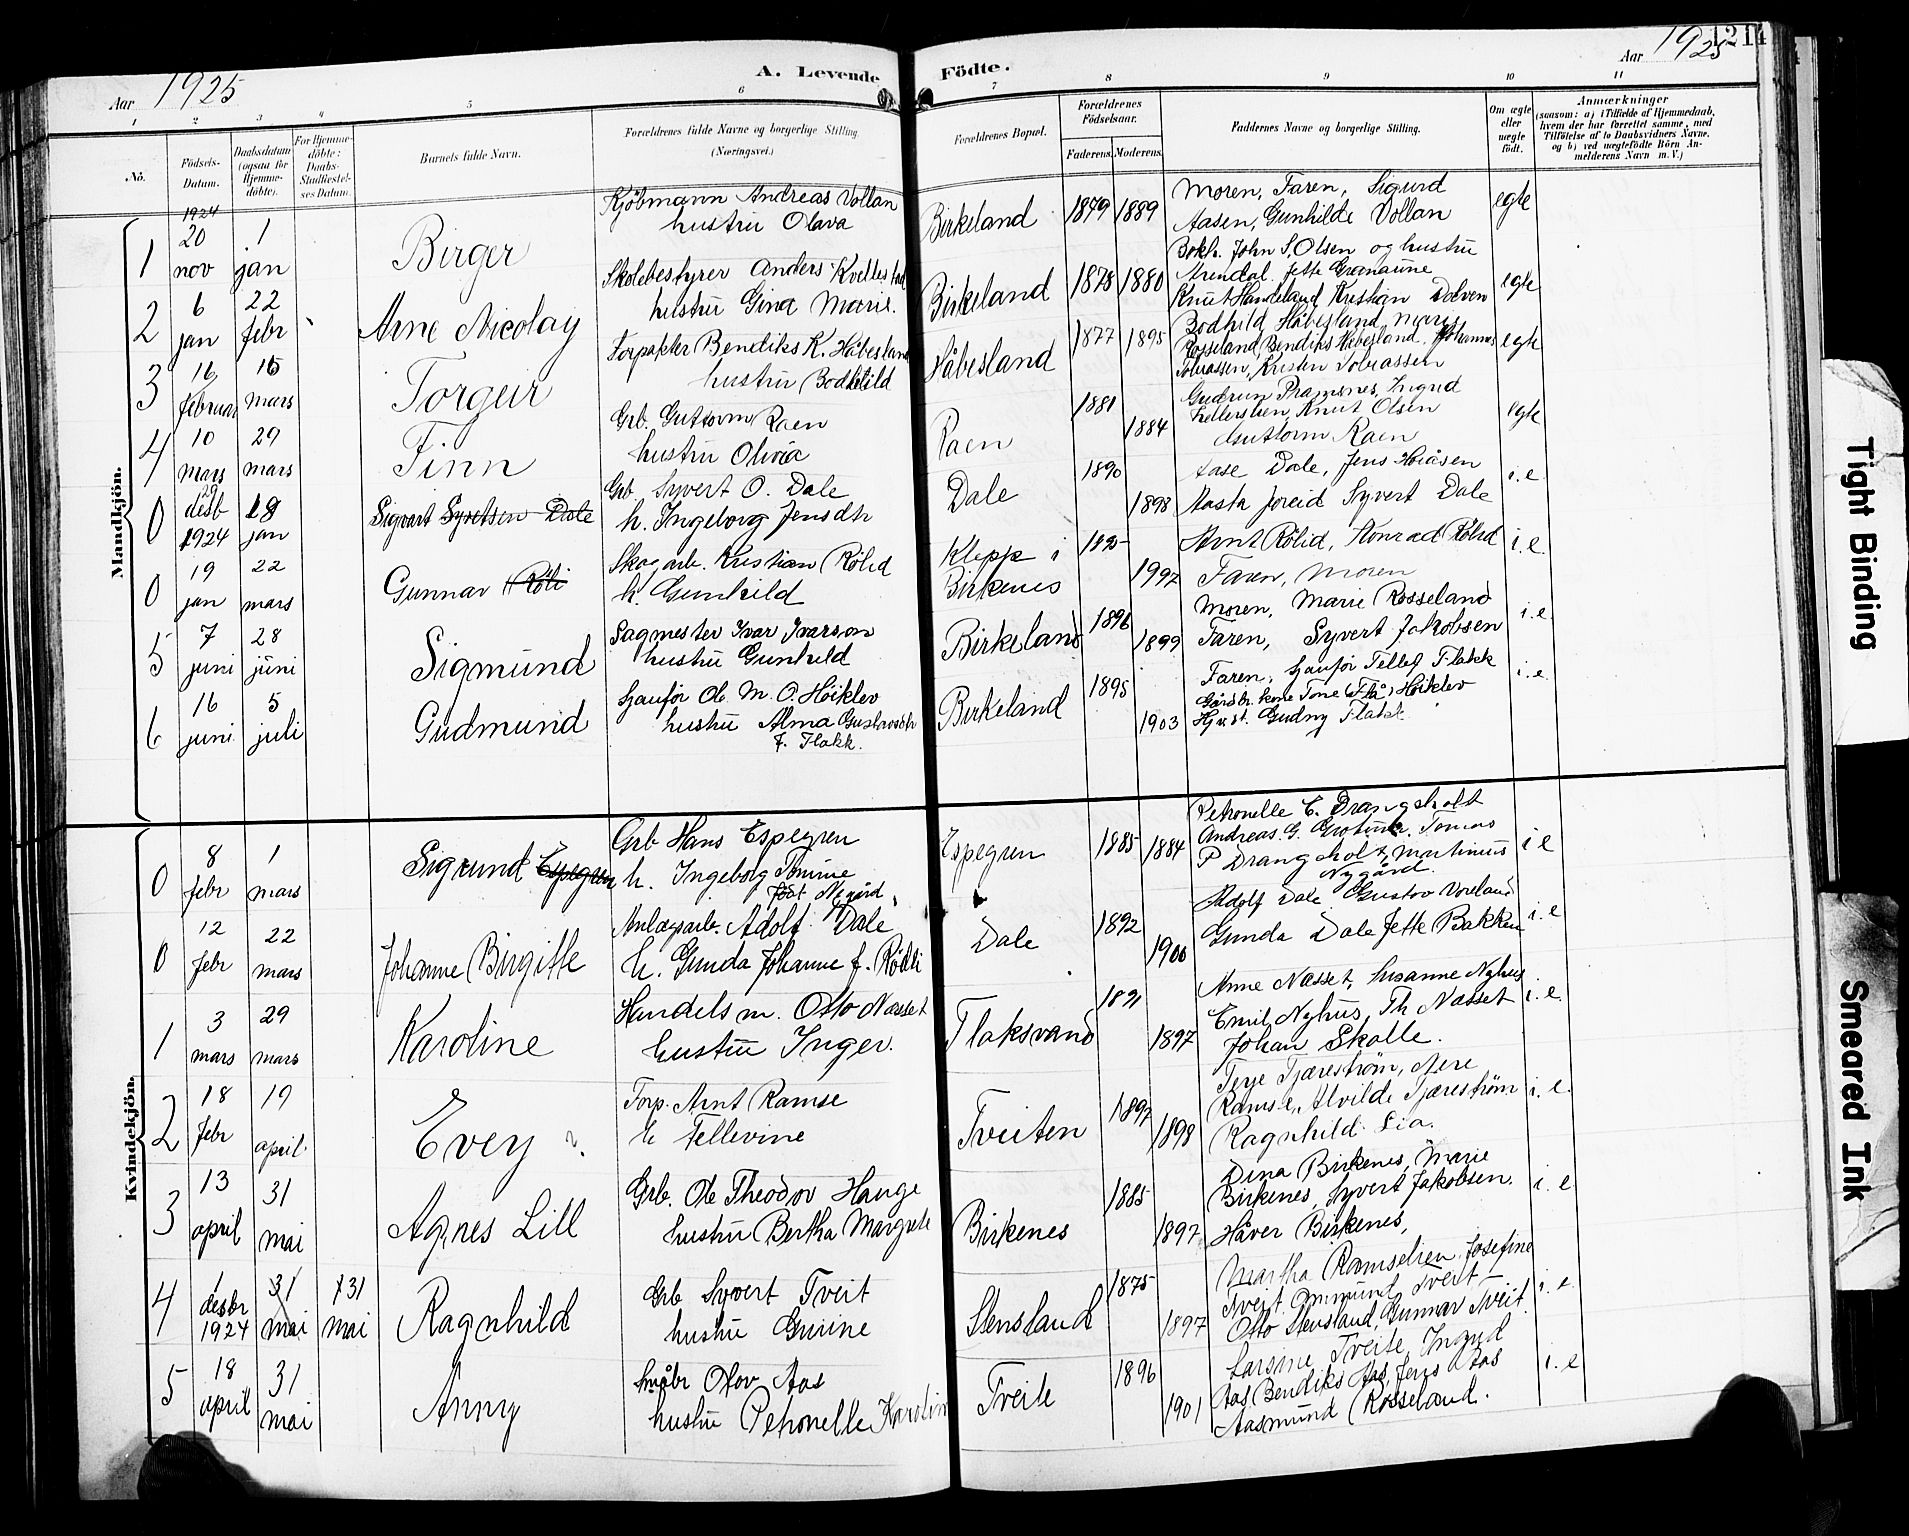 Aar 1925
A. Levende Födte.
Aar 1925
1214
1
2
3
4
5
6
7
8
9
10
11
No.
Födsels-Datum.
Daabsdatum (ogsaa for Hjemmedöbte).
For Hjemmedöbte: Daabs-Stadfæstelses Datum.
Barnets fulde Navn.
Forældrenes fulde Navne og borgerlige Stilling.
(Næringsvei.)
Forældrenes Bopæl.
Forældrenes Födselsaar.
Faderens.
Moderens.
Faddernes Navne og borgerlige Stilling.
Om ægte eller uægte födt.
Anmærkninger
(saasom: a) i Tilfælde af Hjemmedaab, hvem der har forrettet samme, med Tilföielse af to Daabsvidners Navne, og b) ved uægtefödte Börn Anmelderens Navn m. V.)
Mandkjön.
1 1924 20 nov 1 jan Birger
Kjöbmann Andreas Vollan
hustru Olava
Birkeland 1879 1889
Moren, Faren, Sigurd
Aasen, Gunhilde Vollan
egte
Bokh. John S. Olsen og hustru
2 6 jan 22 febr Arne Nicolay
Skolebestyrer Anders Kvellestad
hustru Gina Marie.
Birkeland 1878 1880
Arendal. Jette
Knut Handeland Kristian Dolven
egte
3 16 februar 15 mars Torgeir
Forpakter Bendiks K. Håbesland
hustru Bodhild
Håbesland 1877 1895
Bodhild Håbesland, Marie
Rosseland, Bendiks Håbesland, Johannes
Tobiassen, Kristen Tobiassen
egte
4 10 mars 29 mars Finn
Grb. Guttorm Raen
hustru Olivia
Raen 1881 1884
Gudrun Ingrid
Knut Olsen
Guttorm Raen
egte
0 29 desb 1924 18 jan Sigvart Syvertsen Dale
Grb Syvert O. Dale
h. Ingeborg Jensdtr
Dale 1890 1898
Aase Dale, Jens
Aasta Syvert Dale
i. e
0 19 jan 22 mars Gunnar Röli
Skogarb. Kristian Rölid
h. Gunhild
Klepp i Birkenes 1895 1997
Arnt Rölid, Konrad Rölid
Faren, Moren
i. e.
5 7 juni 28 juni Sigmund
Sagmester Ivar Ivarson
hustru Gunhild
Birkeland 1896 1899
Moren, Marie Rosseland
Faren, Syvert Jakobsen
i. e
6 16 juni 5 juli Gudmund
Sjauför Ole M. O. Höiklev
hustru Alma Gustavsdtr
f. Flakk.
Birkeland 1895 1903
Faren, Sjauför Tellef Flakk
Gårdbr. kone Tone (Flå) Höiklev
Hjvst. Gudny Flakk
i. e
Kvindekjön.
0 8 febr 1 mars Sigrund Espegren
Grb Hans Espegren
h. Ingeborg Tomine
födt Nygård
Espegren 1885 1884
Petronelle C. Drangsholt
Andreas. G. Tomas
P Drangsholt, Martinius
Nygård.
i e
0 12 febr 22 mars Johanne Birgitte
Anlægsarb. Adolf Dale
h. Gunda Johanne f. Rödli
Dale 1892 1900
Adolf Dale Gustav Voreland
Gunda Dale Jette Bakken
i. e
1 3 mars 29 mars Karoline
Handelsm. Otto Næsset
hustru Inger.
Flaksvand 1891 1897
Anne Næsset, Susanne Nyhus
Emil Nyhus, Th Næsset
Johan Skalle.
i. e.
2 18 febr 19 april Evey ?
Forp. Arnt Ramse
h Tellevine
Tveiten 1897 1898
Terje Tjæreström, Aere
Ramse, Alvilde Tjæreström
Ragnhild Lia.
i. e.
3 13 april 31 mai Agnes Lill
Grb. Ole Theodor Hauge
hustru Bertha Margrete
Birkenes 1885 1897
Dina Birkenes, Marie
Birkenes, Syvert Jakobsen.
Håver Birkenes,
i. e
4 1 desbr 1924 31 mai 31 mai Ragnhild
Grb Syvert Tveit
hustru Gurine
Stensland 1875 1897
Martha Ramselien, Josefine
Tveit. Ommund Tveit
Otto Stensland, Gunnar Tveit.
i. e.
5 18 april 31 mai Anny
Småbr Olov Aas
hustru Petronelle Karolin
Tveite 1896 1901
Larsine Tveite, Ingrid
Aas, Bendiks Aas, Jens Aas
Aasmund Rosseland.
i. e
Tight Binding
Smeared Ink